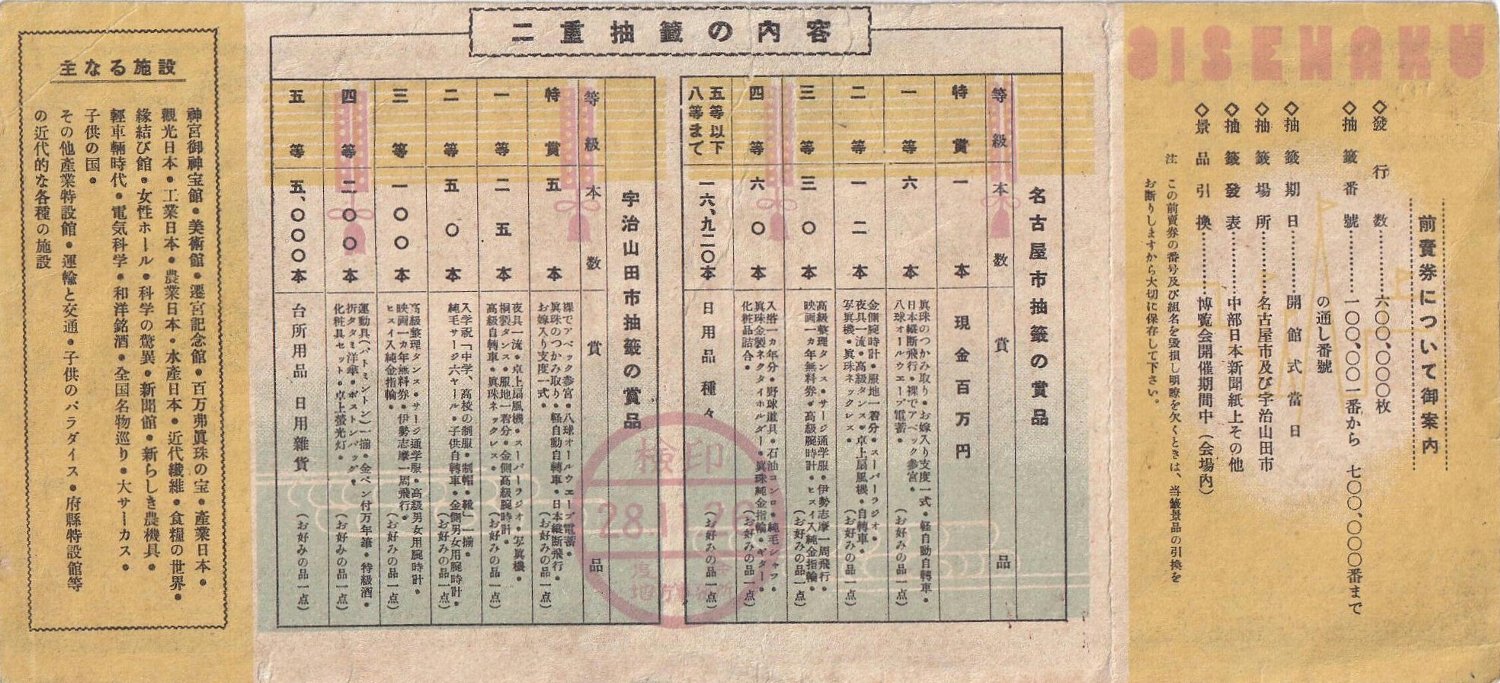 OISEHAKU
前賣券について御案内
◇發行数……六〇〇、〇〇〇枚
◇抽籤番號……一〇〇、〇〇一番から 七〇〇、〇〇〇番まで
の通し番號
◇抽籤期日……開館式當日
◇抽籤場所……名古屋市及び宇治山田市
◇抽籤發表……中部日本新聞紙上その他
◇景品引換……博覧会開催期間中(会場内)
注 この前賣券の番号及び組名を毀損し明瞭を欠くときは、当籤景品の引換を
お断りしますから大切に保存して下さい。
二重抽籤の内容
名古屋市抽籤の賞品
等級 本数 賞品
特賞 一本 現金百万円
一等 六本 眞珠のつかみ取り・お嫁入り支度一式・軽自動自轉車・
日本縦断飛行・裸でアベック参宮・
八球オールウエーブ電蓄・ (お好みの品一点)
二等 一二本 金側腕時計・服地一着分・スーパーラジオ・
夜具一流・高級タンス・卓上扇風機・自轉車・
写眞機・眞珠ネックレス・ (お好みの品一点)
三等 三〇本 高級整理タンス・サージ通学服・伊勢志摩一周飛行・
映画一カ年無料券・高級腕時計・ヒスイ入純金指輪・
(お好みの品一点)
四等 六〇本 入浴一カ年分・野球道具・石油コンロ・純毛シャツ・
眞珠金製ネクタイホルダー・眞珠純金指輪・ギター・
化粧品詰合・ (お好みの品一点)
五等以下
八等まで 一六、九二〇本 日用品種々 (お好みの品一点)
宇治山田市抽籤の賞品
等級 本数 賞品
特賞 五本 裸でアベック参宮・八球オールウエーブ電蓄・
眞珠のつかみ取り・軽自動自轉車・日本縦断飛行・
お嫁入り支度一式・ (お好みの品一点)
一等 二五本 夜具一流・卓上扇風機・スーパーラジオ・写眞機・
桐製タンス・服地一着分・金側高級腕時計・
高級自轉車・眞珠ネックレス・ (お好みの品一点)
二等 五〇本 入学祝「中学、高校の制服・制帽・靴」一揃・
純毛サージ六ヤール・子供自轉車・金側男女用腕時計・
(お好みの品一点)
三等 一〇〇本 高級整理タンス・サージ通学服・高級男女用腕時計・
映画一カ年無料券・伊勢志摩一周飛行・
ヒスイ入純金指輪・ (お好みの品一点)
四等 二〇〇本 運動具(バトミントン)一揃・金ペン付万年筆・特級酒・
折クタミ洋傘・ボストンバッグ・
化粧具セット・卓上螢光灯・ (お好みの品一点)
五等 五、〇〇〇本 台所用品 日用雑貨 (お好みの品一点)
検印
28.11.
主なる施設
神宮御神宝館・美術館・遷宮記念館・百万弗眞珠の宝・産業日本・
観光日本・工業日本・農業日本・水産日本・近代繊維・食糧の世界・
縁結び館・女性ホール・科学の驚異・新聞館・新らしき農機具・
輕車輛時代・電気科学・和洋銘酒・全国名物巡り・大サーカス・
子供の国・
その他産業特設館・運輸と交通・子供のパラダイス・府縣特設館等
の近代的な各種の施設